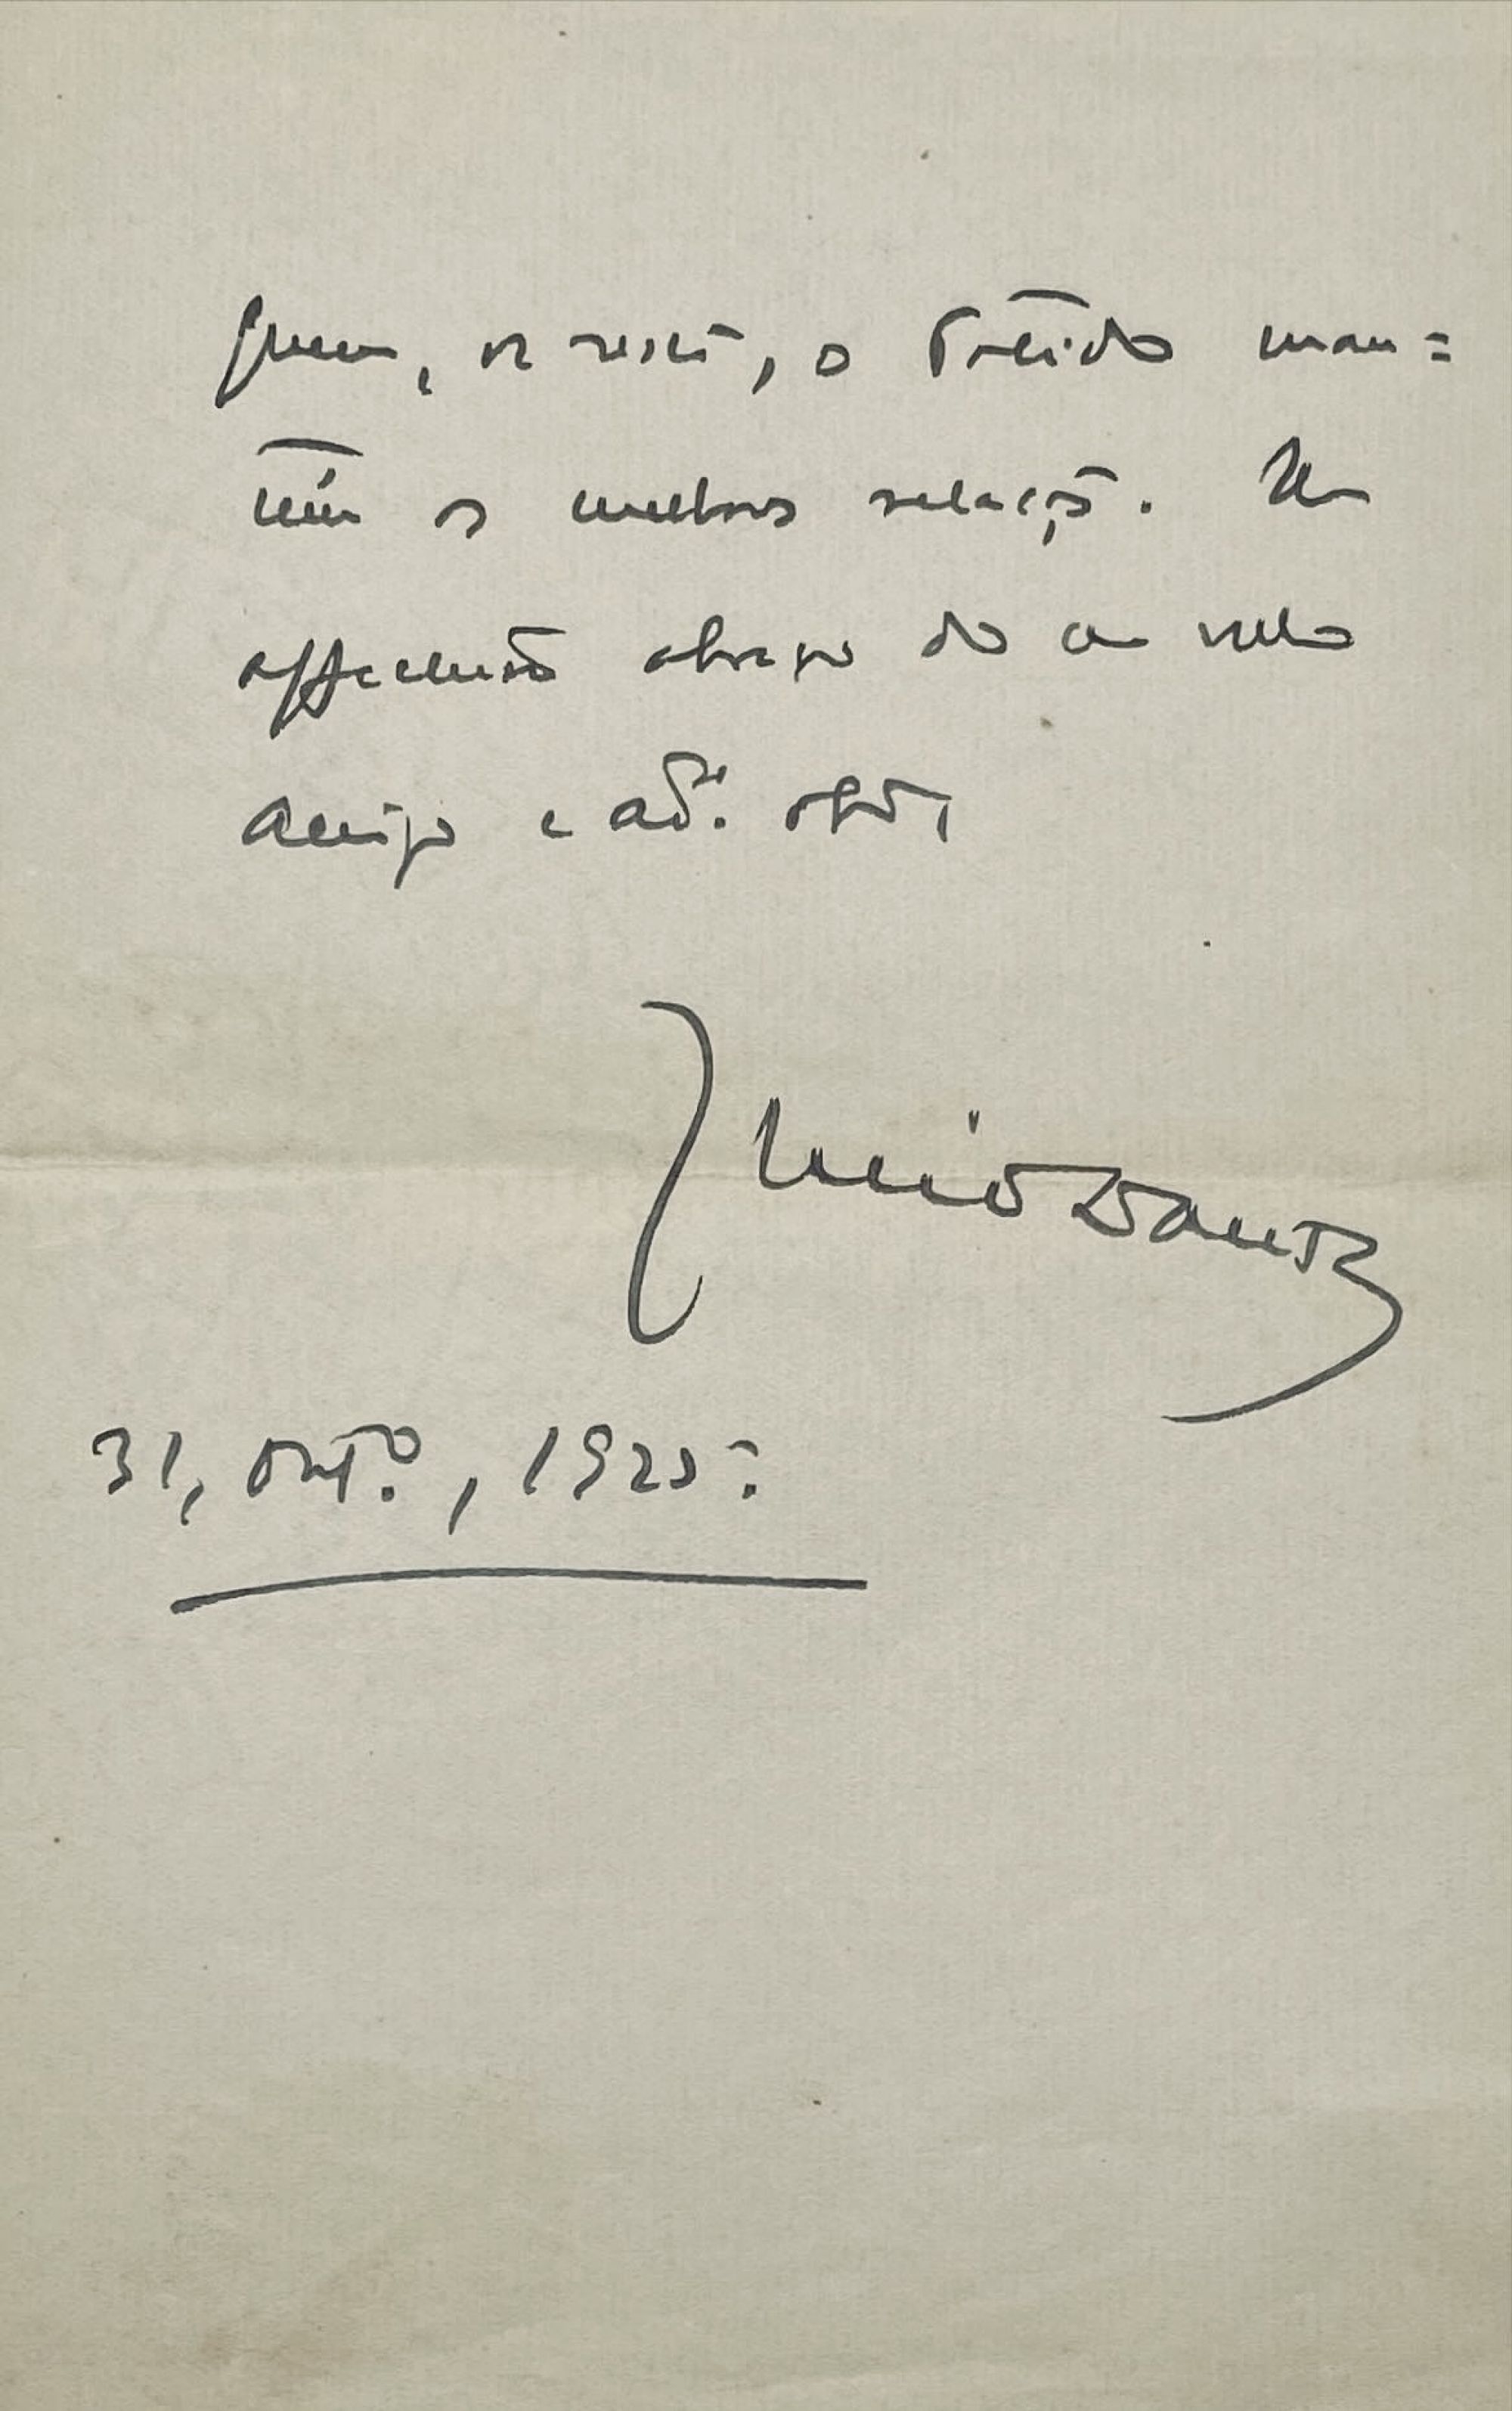 quem, de resto, o Partido man=
tém as melhores relações. Um
affectuoso abraço do seu velho
Amigo e adº. obgº,
Julio Dantas
31, Outº., 1925.